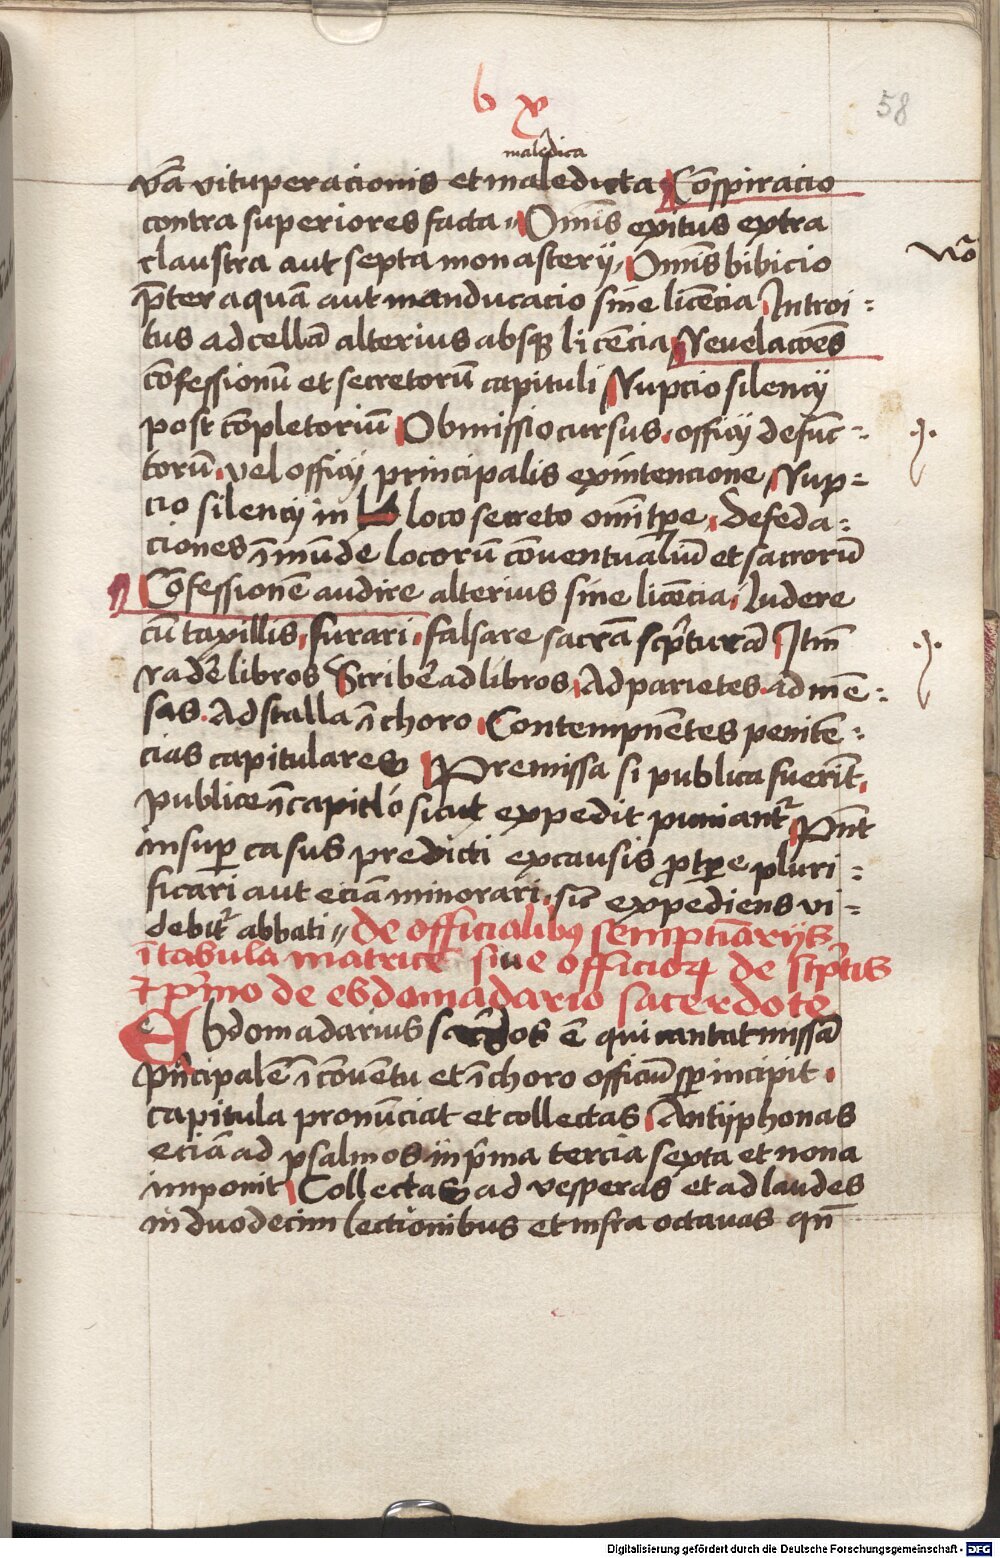 b x
58
maledica
vā vituperacionis et maledicta Cōspiracio
contra superiores facta Om̄is exitus extra
claustra aut septa monasterij Om̄is bibicio
No
p̄ter aquā aut manducacio sine licēcia Introi=
tus ad cellā alterius absq̢ licēcia Reuelacōes
cōfessionū et secretorū capituli Rupcio silencij
post cōpletoriū Obmissio cursus officij defūc=
torū vel officij principalis ex intencione Rup=
cio silencij in loco secreto om̄i tp̄re Defeda=
ciones īmūde locorū cōuentualiū et sacrorū
Cōfessionē audire alterius sine licēcia Ludere
cū taxillis furari falsare sacrā scp̄turā Itm̄
rader̄ libros Scriber̄ ad libros Ad parietes ad mē=
sas Ad stalla ī choro Contempnētes penitē=
cias capitulares Premissa si publica fuerīt
publice ī capitl̄o sicut expedit puniant᷑ Pn̄t
insuꝑ casus predicti ex causis ꝓ tp̄re pluri=
ficari aut eciā minorari sic̄ expediens vi=
debit᷑ abbati de officialibꝰ semptīarijs
ī tabula matrice siue officioꝝ de scp̄tis
⁊ p̄mo de ebdomadario sacerdote
Ebdomadarius sac̄dos ē qui cantat missā
pn̄cipalē ī cōuentu et ī choro officiū sp̄ incipit
capitula pronūciat et collectas Antiphonas
eciā ad psalmos in p̄ma tercia sexta et nona
imponit Collectas ad vesperas et ad laudes
in duodecim lectionibus et infra octauas qn̄
Digitalisierung gefördert durch die Deutsche Forschungsgemeinschaft - DFG